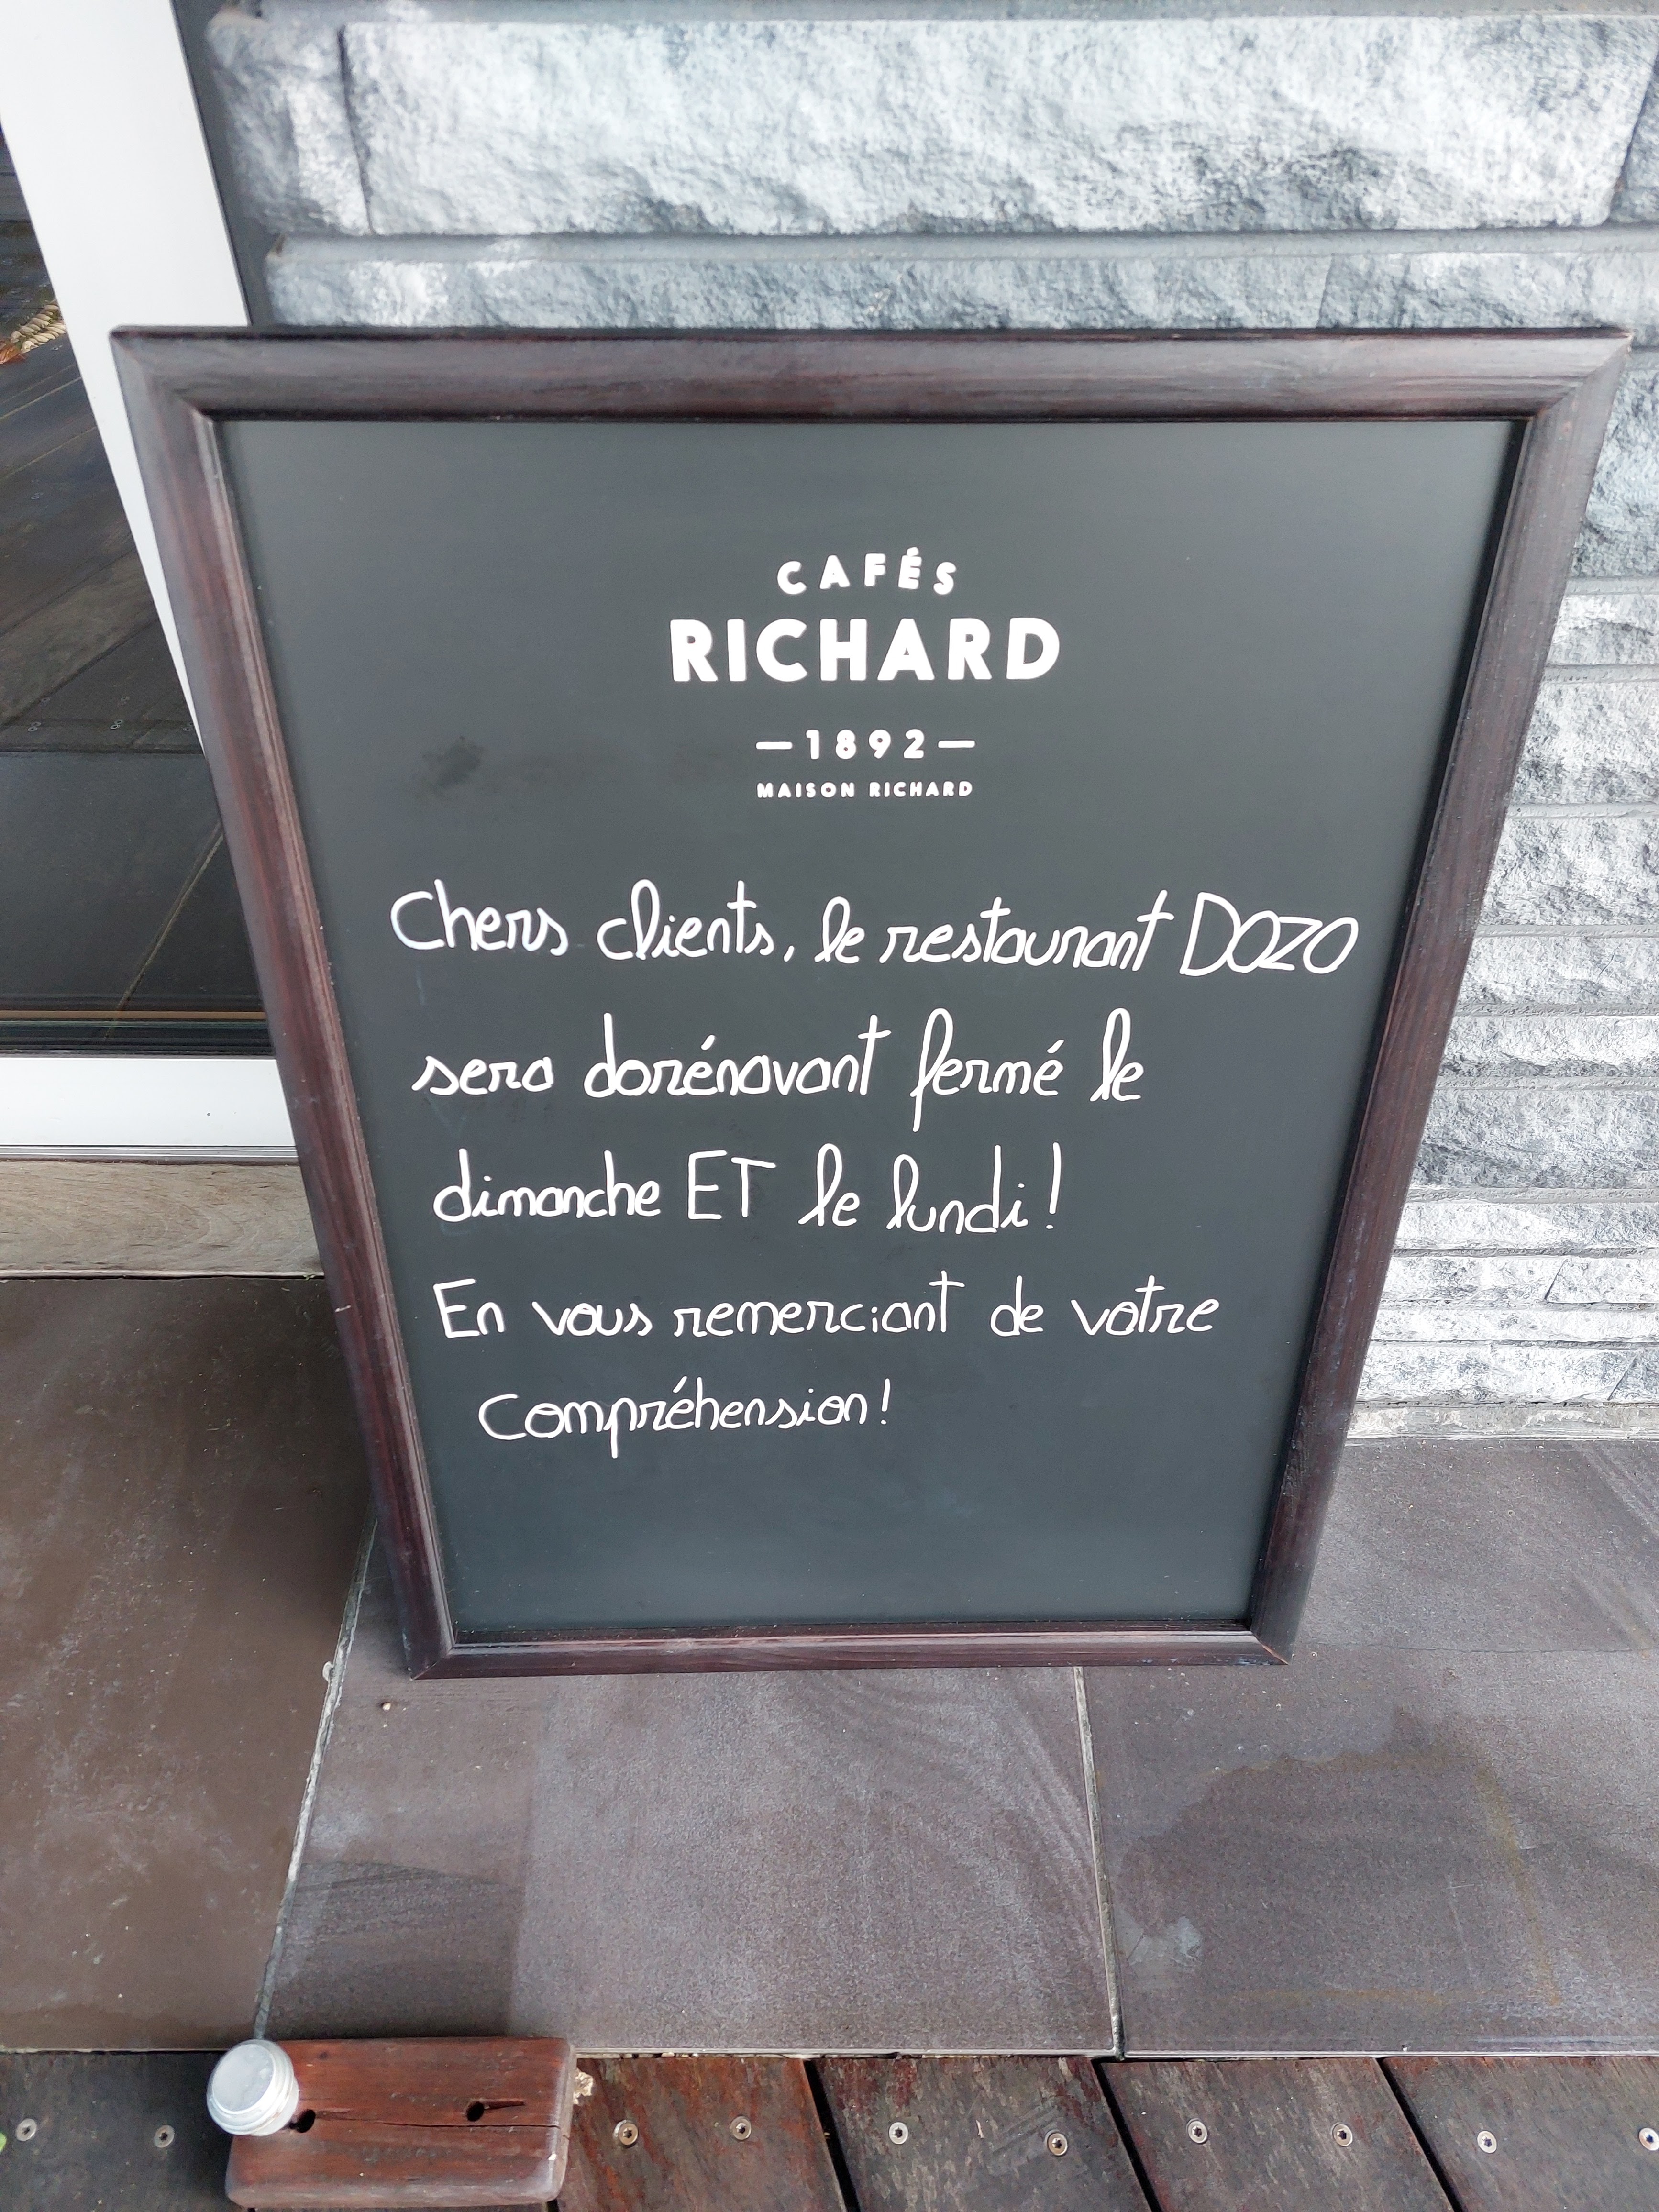 CAFÉS
RICHARD
—1892—
MAISON RICHARD
Chers clients, le restaurant DOZO
sera dorénavant fermé le
dimanche ET le lundi !
En vous remerciant de votre
Compréhension !